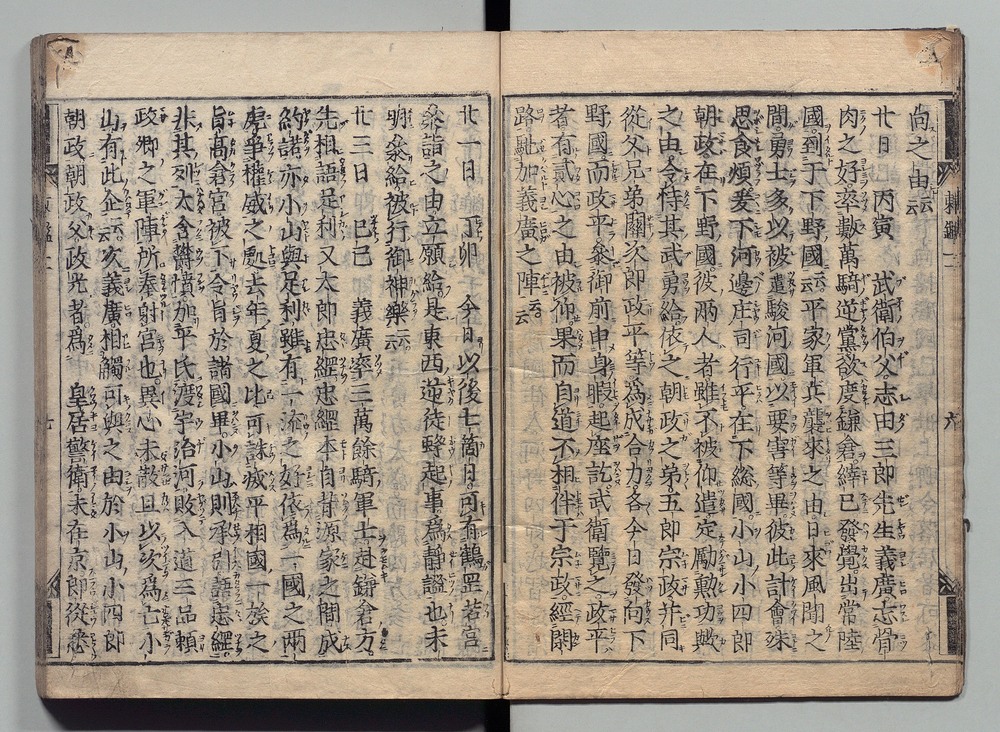 尚之由云云
廿日 丙寅 武衛伯父志田三郎先生義廣忘骨
肉之好率數萬騎逆黨欲度鎌倉縡已發覺出常陸
國到于下野國云云平家軍兵襲來之由日來風聞之
間勇士多以被遣駿河國以要害等畢彼此計會殊
思食煩爰下河邊庄司行平在下総國小山小四郎
朝政在下野國彼兩人者雖不被仰遣定勵勲功歟
之由令恃其武勇給依之朝政之弟五郎宗政并同
從父兄弟關次郎政平等爲成合力各今日發向下
野國而政平參御前申身暇起座訖武衛覽之政平
者有貳心之由被仰果而自道不相伴于宗政經閑
路馳加義廣之陣云云
廿一日 丁卯 今日以後七箇日可有鶴岡若宮
參詣之由立願給是東西逆徒蜂起事爲靜謐也未
明參給被行御神樂云云
廿三日 己巳 義廣率三萬餘騎軍士赴鎌倉方
先相語足利又太郎忠綱忠綱本自背源家之間成
約諾亦小山與足利雖有一流之好依爲一國之兩
虎爭權威之處去年夏之比可誅滅平相國一族之
旨高倉宮被下令旨於諸國畢小山則承別語忠綱
非其列太含欝憤加平氏渡宇治河敗入道三品頼
政卿之軍陣所奉射宮也異心未散且以次爲亡小
山有此企云云次義廣相觸可與之由於小山小四郎
朝政朝政父政光者爲 皇居警衛未在京郎從悉
東鑑二
六
東鑑二
七